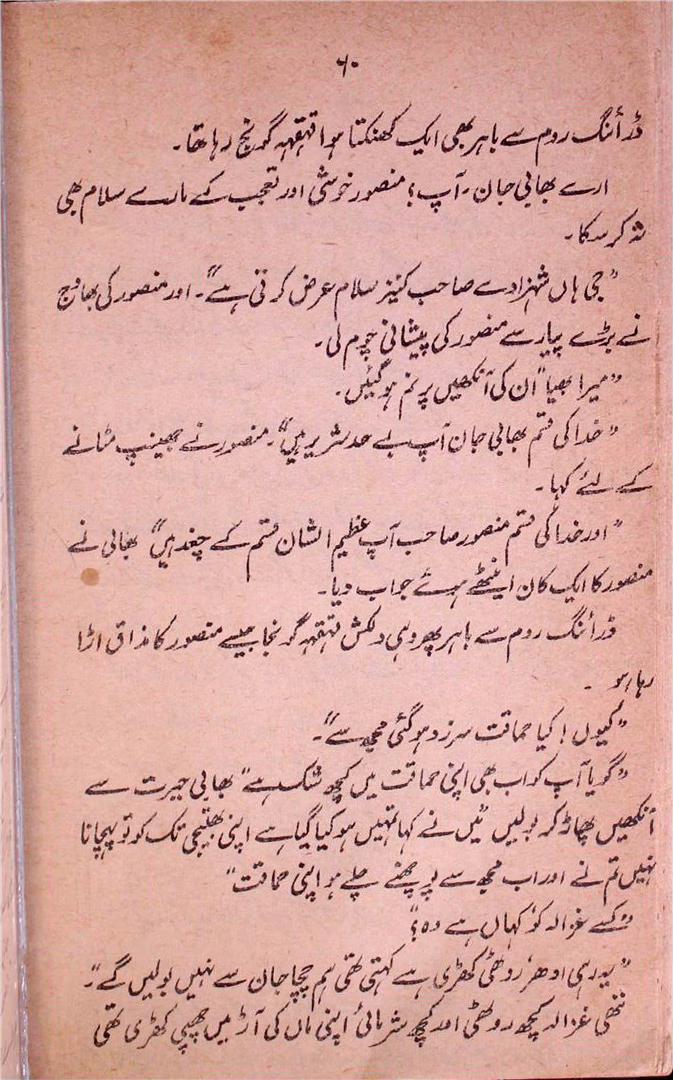 ۶۰
ڈرائنگ روم سے باہر بھی ایک کھنکتا ہوا قہقہہ گونج رہا تھا۔
ارے بھابی جان۔ آپ؛ منصور خوشی اور تعجب کے مارے سلام بھی
نہ کر سکا۔
"جی ہاں شہزادے صاحب کنیز سلام عرض کرتی ہے"۔ اور منصور کی بھاوج
نے بڑے پیار سے منصور کی پیشانی چوم لی۔
"میرا بھیا" ان کی آنکھیں پر نم ہو گئیں۔
"خدا کی قسم بھابی جان آپ بے حد شریر ہیں"۔ منصور نے جھینپ مٹانے
کے لئے کہا۔
"اور خدا کی قسم منصور صاحب آپ عظیم الشان قسم کے چغد ہیں" بھابی نے
منصور کا ایک کان اینٹھتے ہوئے جواب دیا۔
ڈرائنگ روم سے باہر پھر وہی دلکش قہقہہ گونجا جیسے منصور کا مذاق اڑا
رہا ہو۔
"کیوں! کیا حماقت سرزد ہو گئی مجھ سے"۔
"گویا آپ کو اب بھی اپنی حماقت میں کچھ شک ہے" بھابی حیرت سے
آنکھیں پھاڑ کر بولیں "میں نے کہا تمہیں ہو کیا گیا ہے اپنی بھتیجی تک کو تو پہچانا
نہیں تم نے اور اب مجھ سے پوچھنے چلے ہو اپنی حماقت"
"کسے غزالہ کو، کہاں ہے وہ؟"
"یہ رہی ادھر روٹھی کھڑی ہے کہتی تھی ہم چچا جان سے نہیں بولیں گے"۔
ننھی غزالہ کچھ روٹھی اور کچھ شرمائی اپنی ماں کی آڑ میں چھپی کھڑی تھی